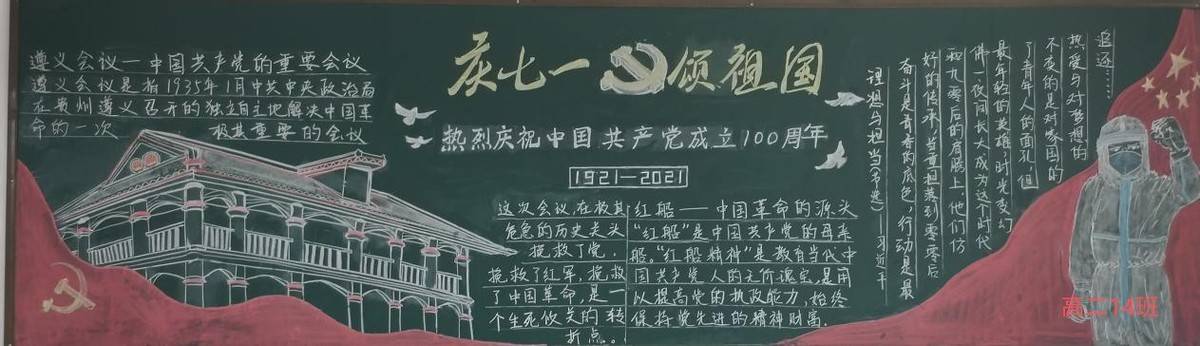 遵义会议一中国共产党的重要会议
遵义会议是指1935年1月中共中央政治局
在贵州遵义召开的独立自主地解决中国革
命的一次 极其重要的会议
庆七一 颂祖国
热烈庆祝中国共产党成立100周年
1921—2021
这次会议,在极其
危急的历史关头
挽救了党,
挽救了红军,挽救
了中国革命,是一
个生死攸关的转
折点。
红船——中国革命的源头
“红船”是中国共产党的母亲
船。“红船精神”是教育当代中
国共产党人的无价瑰宝,是用
以提高党的执政能力,始终
保持党先进的精神财富.
追逐……
热爱与对梦想的
不变的是对家国的
了青年人的面孔,但
最年轻的英雄时光变幻
佛一夜间长大成为这个时代
和九零后的肩膀上,他们仿
好的传承,当重担落到零零后
奋斗是青春的底色,行动是最
理想与担当
——习近平
高二14班